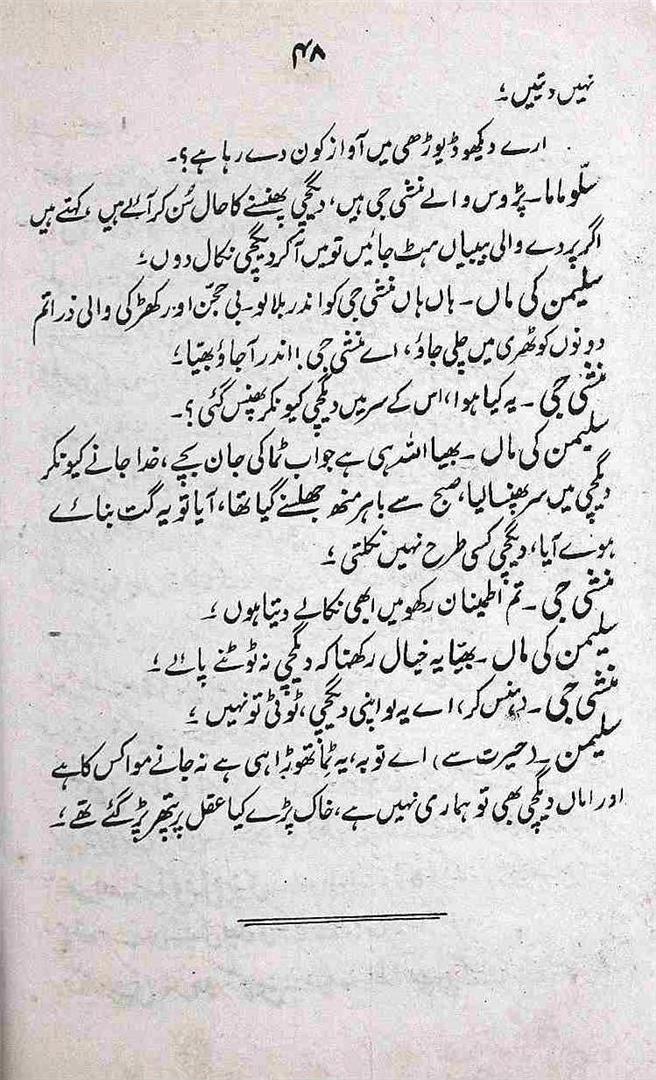 ۴۸
نہیں دیتیں ؛
ارے دیکھو ڈیوڑھی میں آواز کون دے رہا ہے ؟۔
سلّو ماما۔ پڑوس والے منشی جی ہیں، دیگچی پھنسنے کا حال سُن کر آئے ہیں ، کہتے ہیں
اگر پردے والی بیبیاں ہٹ جائیں تو میں آکر دیگچی نکال دوں ؛
سلیمن کی ماں ۔ ہاں ہاں منشی جی کو اندر بلا لو۔ بی جحّن اور کھڑکی والی ذرا تم
دونوں کوٹھری میں چلی جاؤ ، اے منشی جی ! اندر آجاؤ بھیّا ؛
منشی جی ۔ یہ کیا ہوا، اس کے سر میں دیگچی کیونکر پھنس گئی ؟۔
سلیمن کی ماں ۔ بھیا اللہ ہی ہے جو اب ٹما کی جان بچے ، خدا جانے کیونکر
دیگچی میں سر پھنسا لیا ، صبح سے باہر منھ جھلسنے گیا تھا ، آیا تو یہ گت بنائے
ہوے آیا ، دیگچی کسی طرح نہیں نکلتی ؛
منشی جی ۔ تم اطمینان رکھو میں ابھی نکالے دیتا ہوں ؛
سلیمن کی ماں ۔ بھیّا یہ خیال رکھنا کہ دیگچی نہ ٹوٹنے پائے ؛
منشی جی ۔ (ہنس کر) اے یہ لو اپنی دیگچی ، ٹوٹی تو نہیں ؛
سلیمن ۔ (حیرت سے) اے توبہ ، یہ ٹما تھوڑا ہی ہے نہ جانے موا کس کا ہے
اور اماں دیگچی بھی تو ہماری نہیں ہے ، خاک پڑے کیا عقل پر پتھر پڑ گئے تھے ؛